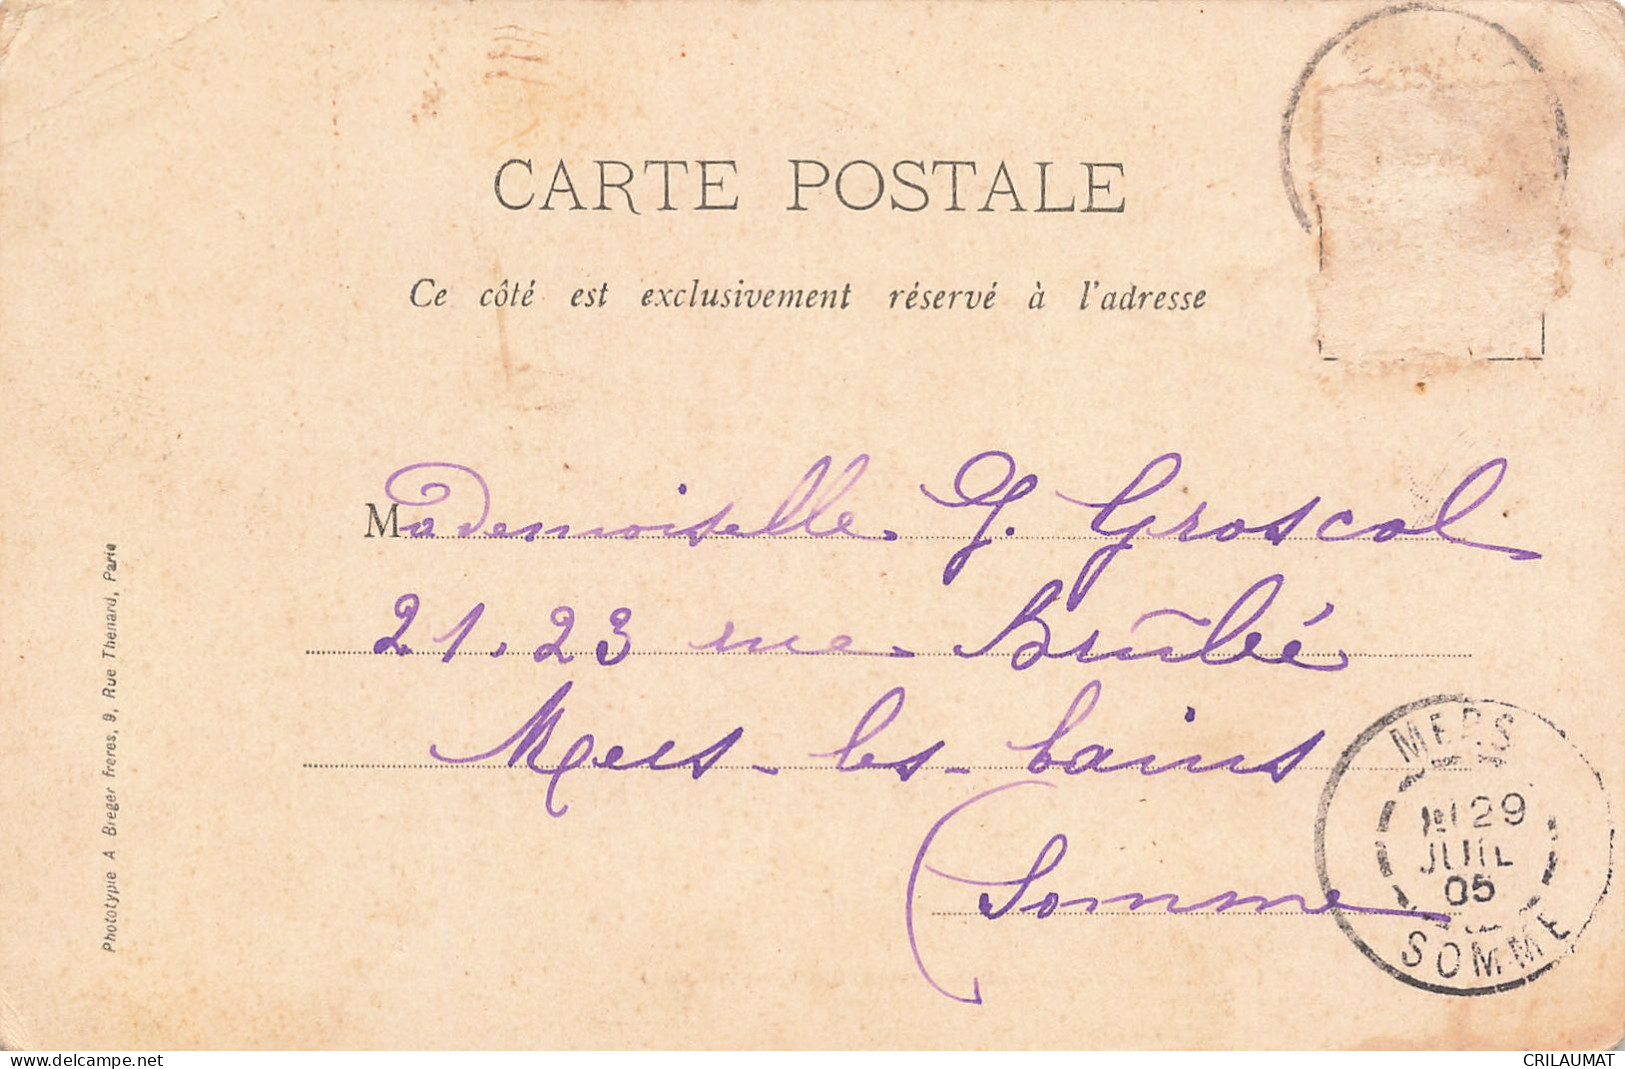 CARTE POSTALE
Ce côté est exclusivement réservé à l'adresse
Mademoiselle G. Groscol
21.23 rue Brûlée
Mers-les-bains
(Somme
MERS
29
JUIL
05
SOMME
Phototypie A Breger frères, 9, Rue Thénard, Paris
www.delcampe.net
CRILAUMAT